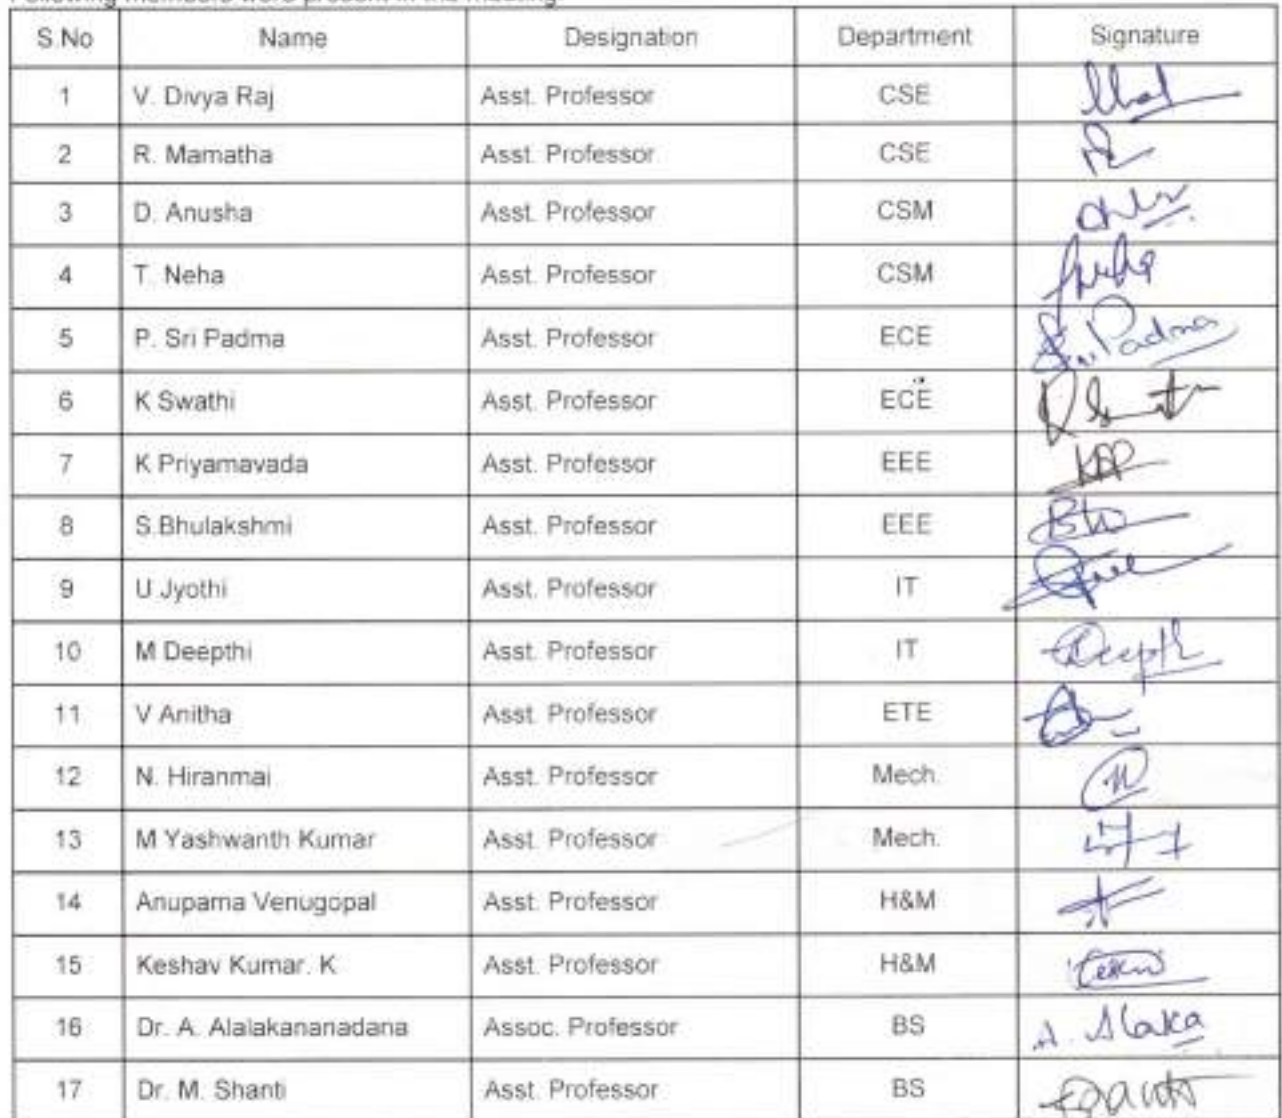 Following members were present in the meeting
S.No Name Designation Department Signature
1 V. Divya Raj Asst. Professor CSE
2 R. Mamatha Asst. Professor CSE
3 D. Anusha Asst. Professor CSM
4 T. Neha Asst. Professor CSM
5 P. Sri Padma Asst. Professor ECE Sri Padma
6 K Swathi Asst. Professor ECE
7 K Priyamavada Asst. Professor EEE
8 S.Bhulakshmi Asst. Professor EEE
9 U.Jyothi Asst. Professor IT
10 M Deepthi Asst. Professor IT Deepth
11 V Anitha Asst. Professor ETE
12 N. Hiranmai Asst. Professor Mech.
13 M Yashwanth Kumar Asst. Professor Mech.
14 Anupama Venugopal Asst. Professor H&M
15 Keshav Kumar. K Asst. Professor H&M
16 Dr. A. Alalakananadana Assoc. Professor BS A. Alaka
17 Dr. M. Shanti Asst. Professor BS